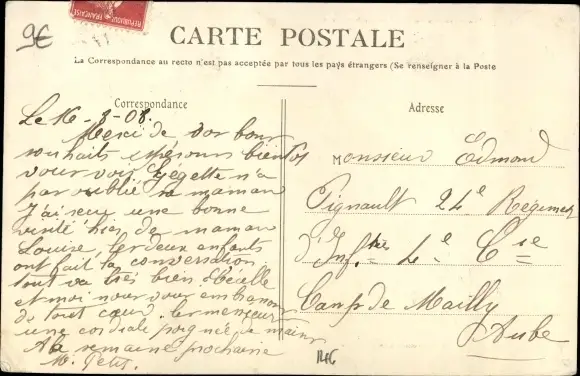 9€
CARTE POSTALE
La Correspondance au recto n'est pas acceptée par tous les pays étrangers (Se renseigner à la Poste
Correspondance
Le 16-3-08.
Merci de vos bons
souhaits espérons bientôt
vous voir
n'a
pas oublié sa maman
J'ai reçu une bonne
visite hier de maman
Louise, les deux enfants
ont fait la conversation
tout va très bien
et moi nous vous embrassons
de tout cœur. les messieurs
une cordiale poignée de main
A la semaine prochaine
M. Petit.
Adresse
Monsieur Edmond
Pignault 24e Régiment
d'Inf.tie 4e Cie
Camp de Mailly
Aube